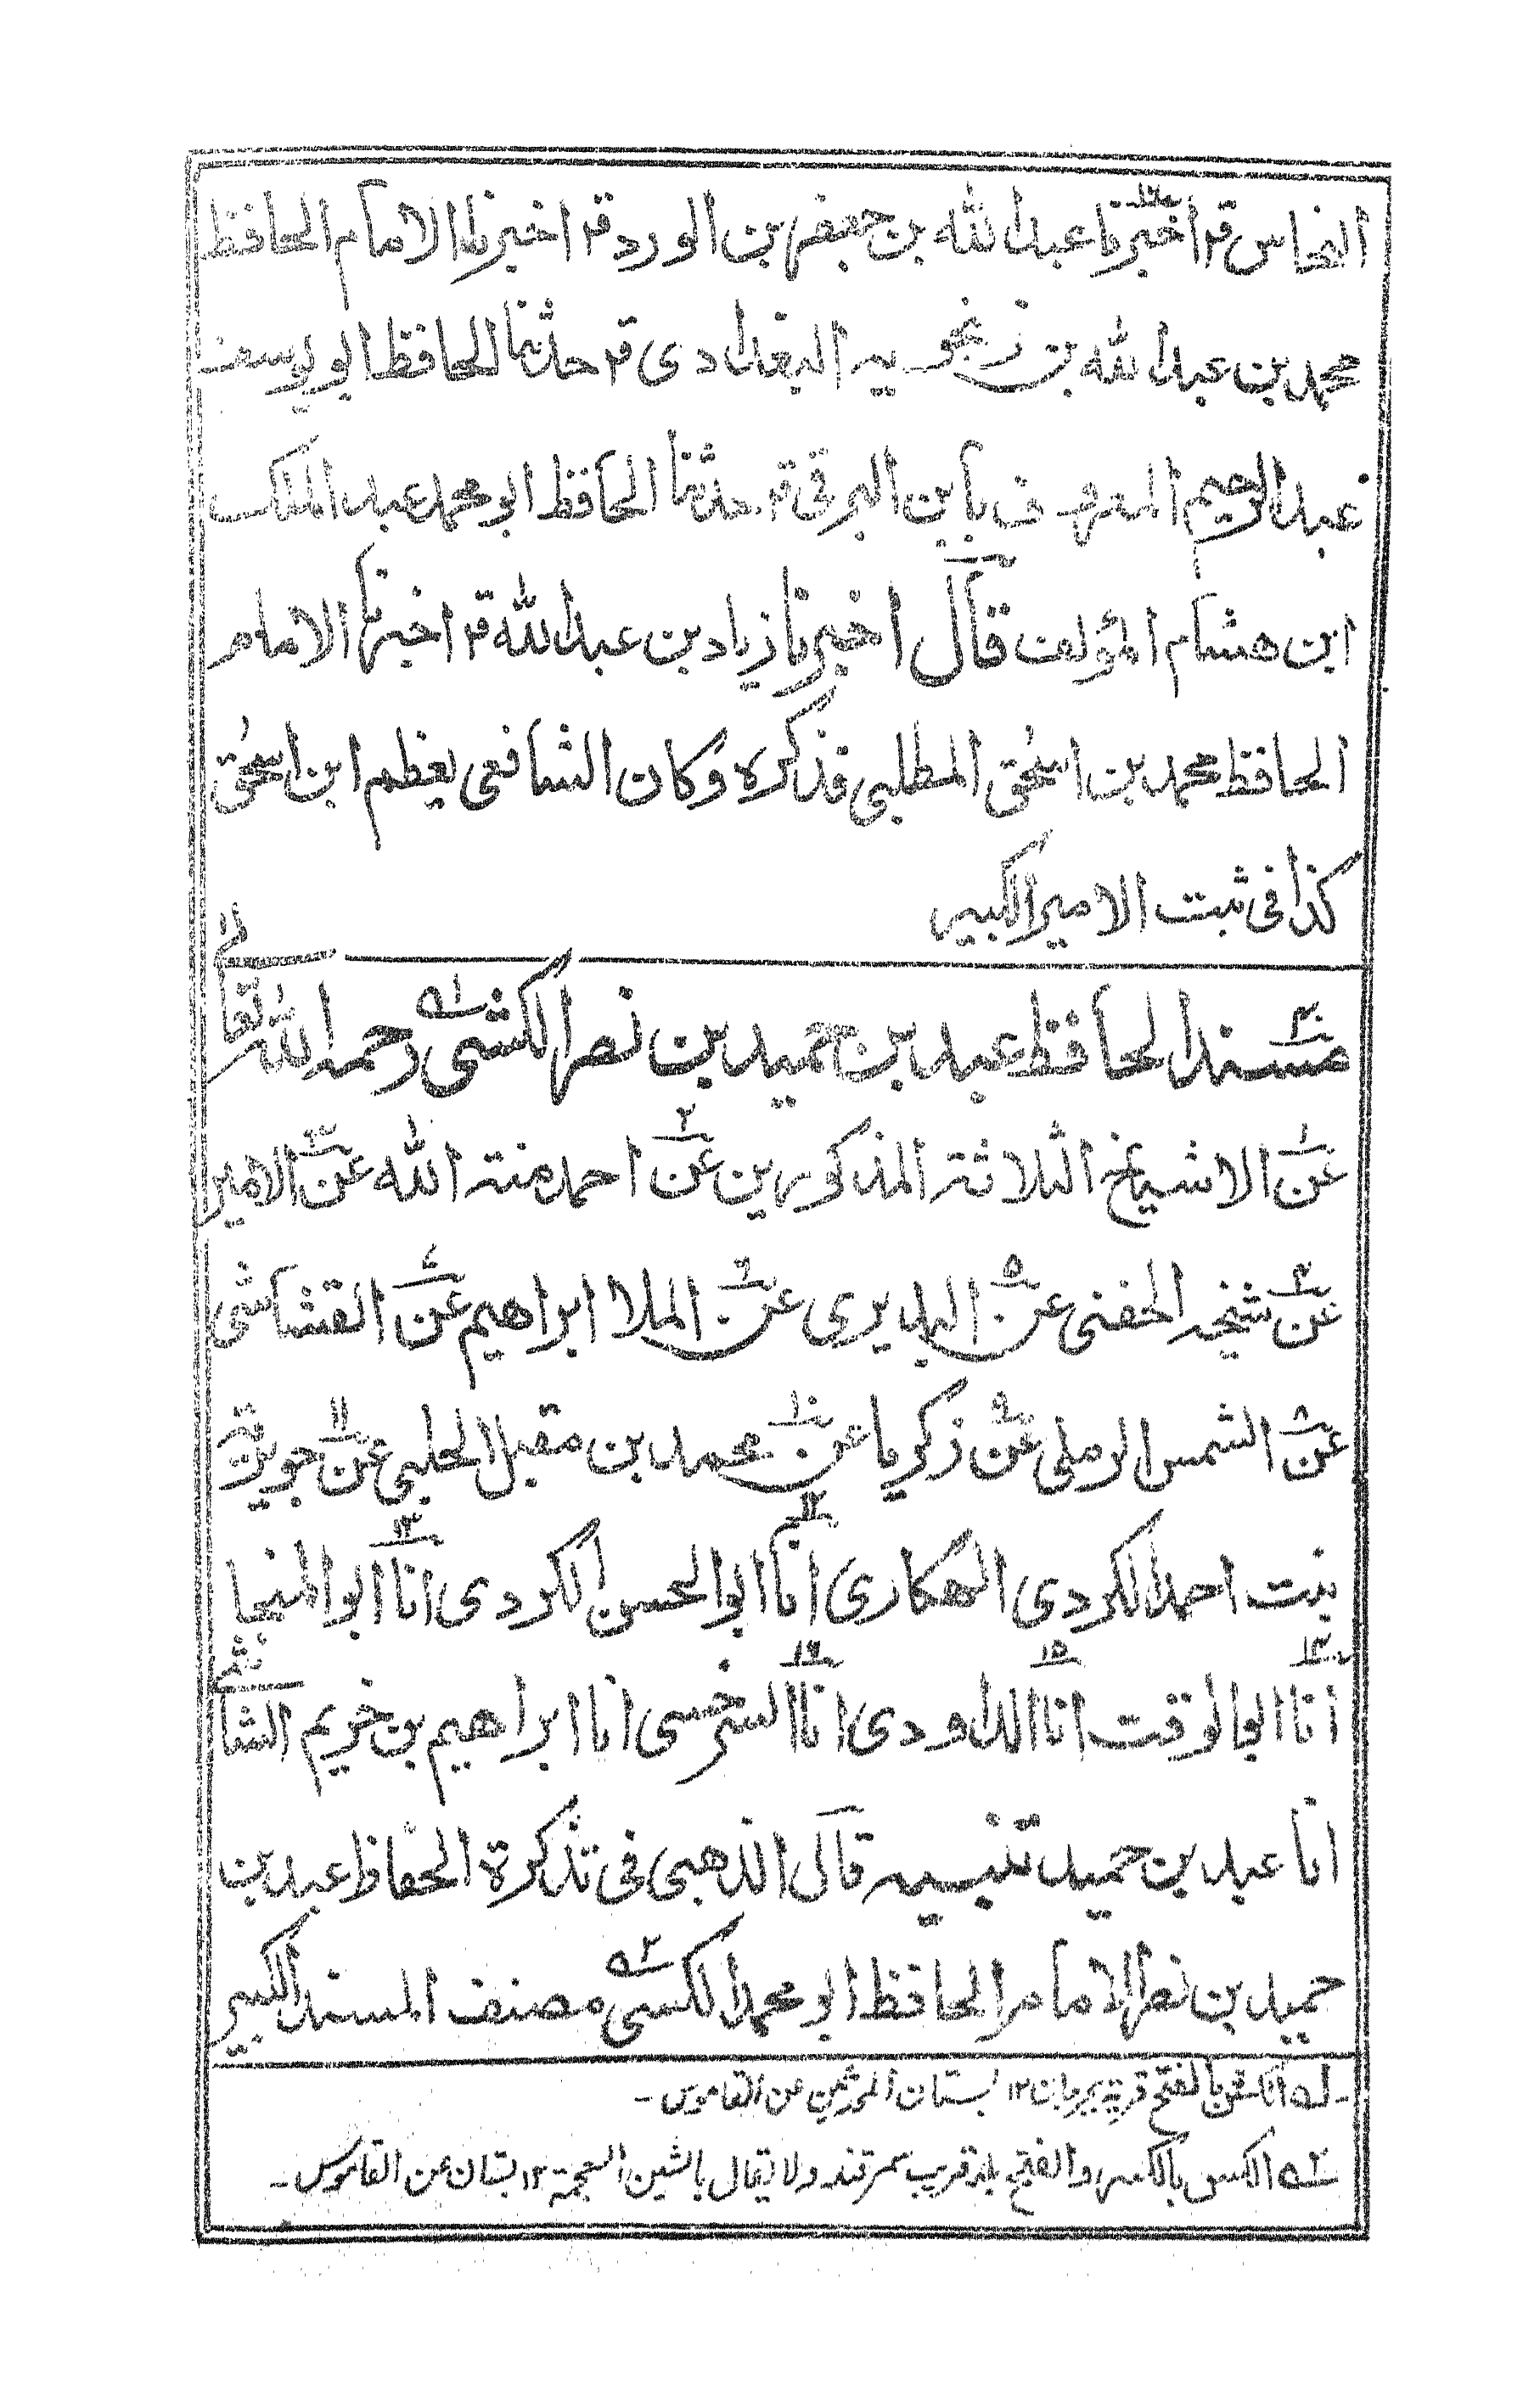 النحاس قا اخبرنا عبد الله بن جعفر بن الورد قا اخبرنا الامام الحافظ
محمد بن عبد الله بن زنجويه البغدادى قا حدثنا الحافظ ابو يوسف
عبد الرحيم المعروف بابن البرقى قا حدثنا الحافظ ابو محمد عبد الملك
ابن هشام المؤلف قال اخبرنا زياد بن عبد الله قا اخبرنا الامام
الحافظ محمد بن اسحٰق المطلبى فذكره وكان الشافعى يعظم ابن اسحٰق
كذا فى ثبت الامير الكبير
مسند الحافظ عبد بن حميد بن نصر الكشى ١ه رحمه الله تعالىٰ
عن١ الاشياخ الثلاثة المذكورين عن٢ احمد منة الله عن٣ الامير
عن٤ شيخه الحفنى عن٥ البديرى عن٦ الملا ابراهيم عن٧ القشاشى
عن٨ الشمس الرملى عن٩ زكريا عن١٠ محمد بن مقبل الحلبى عن١١ جويرية
بنت احمد الكردى الهكارى انا١٢ ابو الحسن الكردى انا١٣ ابو المنجا
انا١٤ ابو الوقت انا١٥ الداودى انا١٦ السرخسى انا ابراهيم بن خريم الشاشى
انا عبد بن حميد تنبيه قال الذهبى فى تذكرة الحفاظ عبد بن
حميد بن نصر الامام الحافظ ابو محمد الكسى ٢ه مصنف المسند الكبير
١ه الكش بالفتح قرية بجرجان ١٢ بستان المحدثين عن القاموس-
٢ه الكس بالكسر والفتح بلد قريب سمرقند ولا يقال بالشين المعجمة ١٢ بستان عن القاموس-